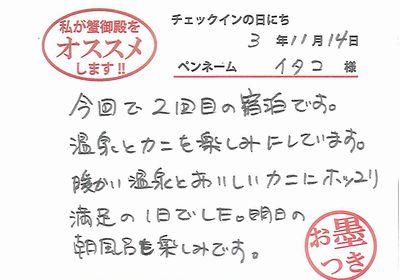 私が蟹御殿を
オススメ
します!!
チェックインの日にち
3年11月14日
ペンネーム イタコ 様
今回で2回目の宿泊です。
温泉とカニを楽しみにしています。
暖かい温泉とおいしいカニにホッコリ
満足の1日でした。明日の
朝風呂も楽しみです。
お墨
つき